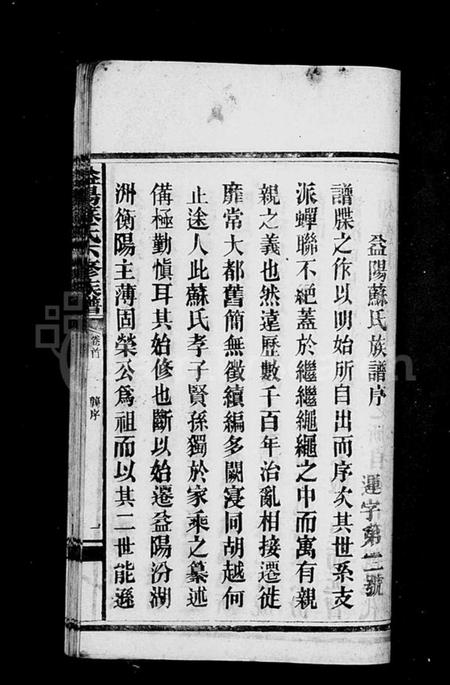 益陽蘇氏族譜序
運字第二號
譜牒之作以明始所自出而序次其世系支
派蟬聯不絕蓋於繼繼繩繩之中而寓有親
親之義也然遠歷數千百年治亂相接遷徙
靡常大都舊簡無徵續編多闕寖同胡越何
止途人此蘇氏孝子賢孫獨於家乘之纂述
備極勤慎耳其始修也斷以始遷益陽汾湖
洲衡陽主薄固榮公爲祖而以其二世能遜
益陽蘇氏六修族譜
卷首
龔序
一